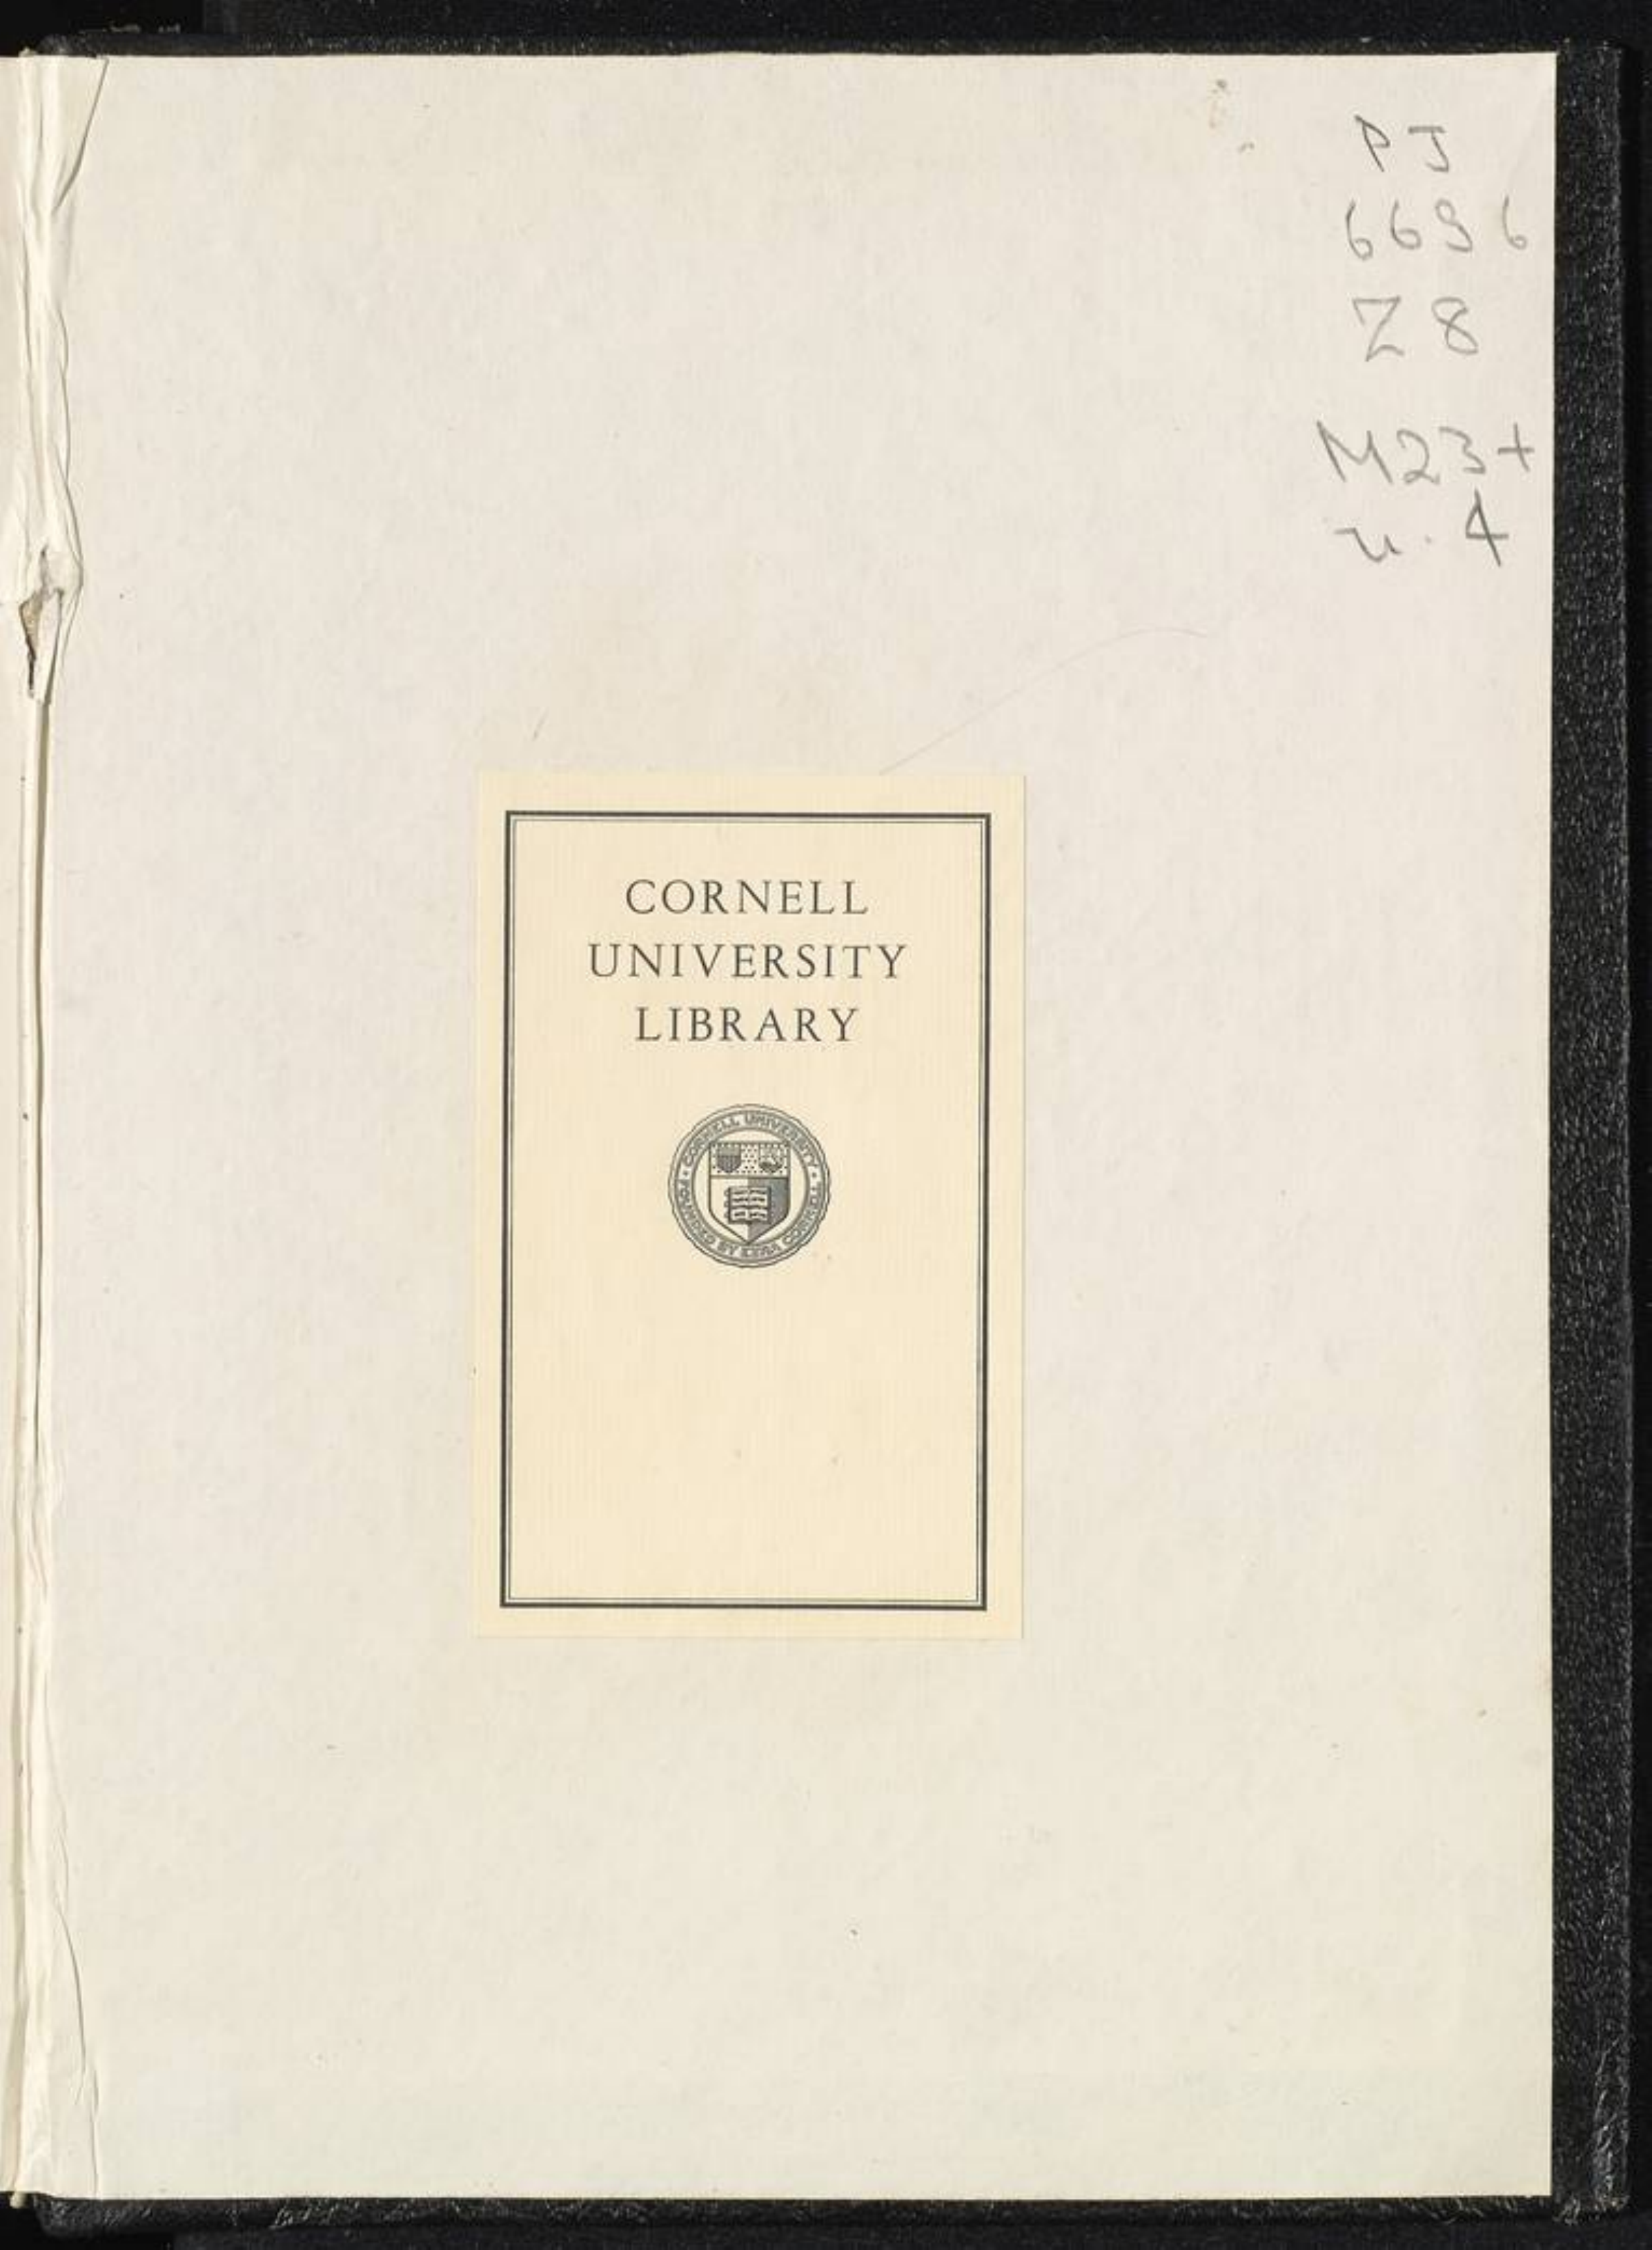 PJ
6696
Z8
M23+
v.4
CORNELL
UNIVERSITY
LIBRARY
CORNELL UNIVERSITY
FOUNDED BY EZRA CORNELL